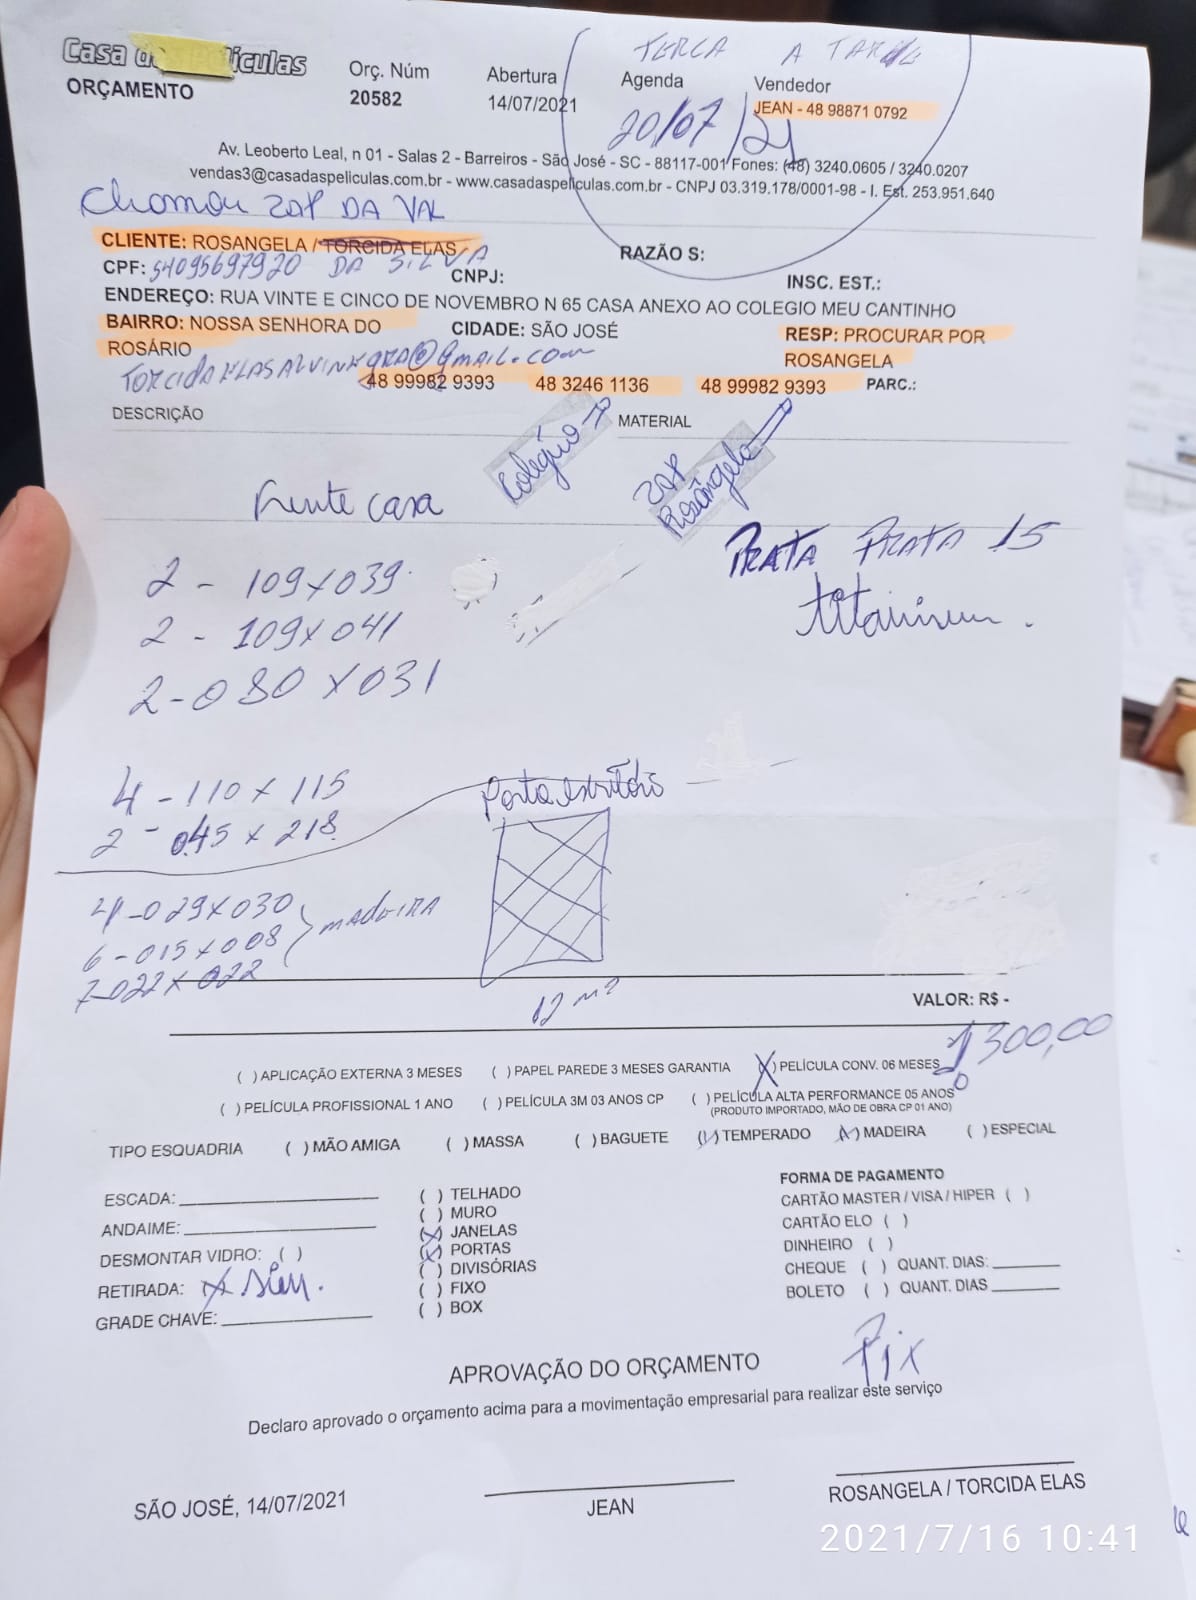 TERCA A TARDE
Casa das Películas
ORÇAMENTO
Orç. Núm
20582
Abertura
14/07/2021
Agenda
20/07/21
Vendedor
JEAN - 48 98871 0792
Av. Leoberto Leal, n 01 - Salas 2 - Barreiros - São José - SC - 88117-001 Fones: (48) 3240.0605 / 3240.0207
vendas3@casadaspeliculas.com.br - www.casadaspeliculas.com.br - CNPJ 03.319.178/0001-98 - I. Est. 253.951.640
Chamou ZAP DA VAL
CLIENTE: ROSANGELA / TORCIDA ELAS
RAZÃO S:
CPF: 54095697920 DA SILVA
CNPJ:
INSC. EST.:
ENDEREÇO: RUA VINTE E CINCO DE NOVEMBRO N 65 CASA ANEXO AO COLEGIO MEU CANTINHO
BAIRRO: NOSSA SENHORA DO
ROSÁRIO
CIDADE: SÃO JOSÉ
RESP: PROCURAR POR
ROSANGELA
TORCIDAELASALVINEGRA@gmail.com
48 99982 9393 48 3246 1136 48 99982 9393 PARC.:
DESCRIÇÃO
MATERIAL
Colégio
ZAP
Rosângela
Frente casa
PRATA PRATA 15
titainium.
2 - 109x039
2 - 109x041
2 - 080x031
4 - 110x115
2 - 045x218
Porta escritório
4 - 029x030
6 - 015x008
madeira
7 - 022x022
12 m²
VALOR: R$ -
1300,00
( ) APLICAÇÃO EXTERNA 3 MESES ( ) PAPEL PAREDE 3 MESES GARANTIA (X) PELÍCULA CONV. 06 MESES
( ) PELÍCULA PROFISSIONAL 1 ANO ( ) PELÍCULA 3M 03 ANOS CP ( ) PELÍCULA ALTA PERFORMANCE 05 ANOS
(PRODUTO IMPORTADO, MÃO DE OBRA CP 01 ANO)
TIPO ESQUADRIA ( ) MÃO AMIGA ( ) MASSA ( ) BAGUETE (X) TEMPERADO (X) MADEIRA ( ) ESPECIAL
ESCADA:
ANDAIME:
DESMONTAR VIDRO: ( )
RETIRADA: X Sim.
GRADE CHAVE:
( ) TELHADO
( ) MURO
(X) JANELAS
(X) PORTAS
( ) DIVISÓRIAS
( ) FIXO
( ) BOX
FORMA DE PAGAMENTO
CARTÃO MASTER / VISA / HIPER ( )
CARTÃO ELO ( )
DINHEIRO ( )
CHEQUE ( ) QUANT. DIAS:
BOLETO ( ) QUANT. DIAS
Pix
APROVAÇÃO DO ORÇAMENTO
Declaro aprovado o orçamento acima para a movimentação empresarial para realizar este serviço
SÃO JOSÉ, 14/07/2021
JEAN
ROSANGELA / TORCIDA ELAS
2021/7/16 10:41